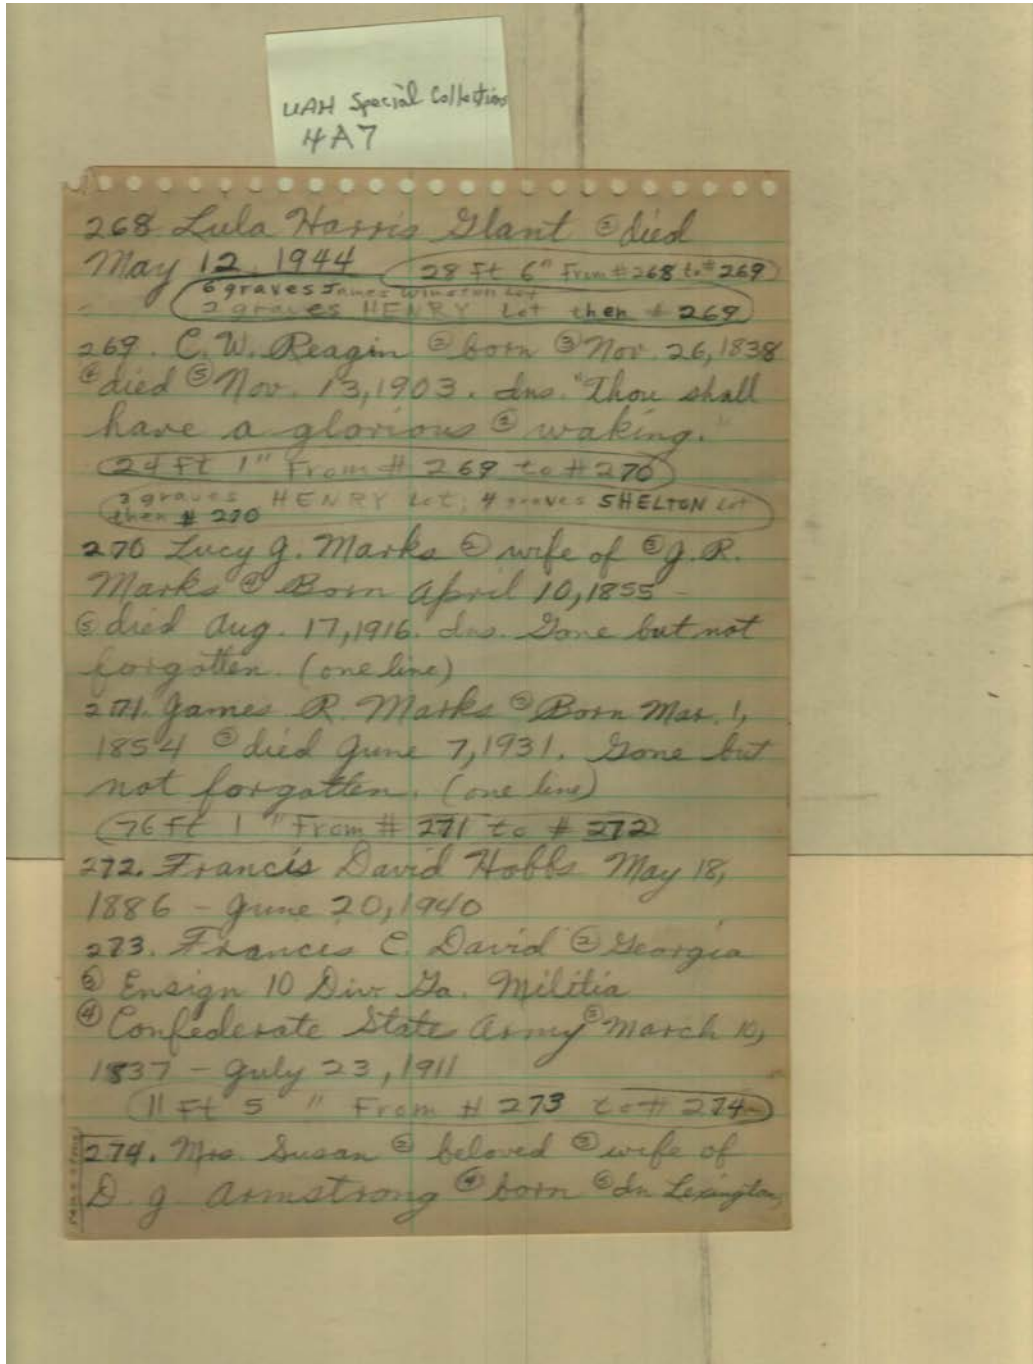 UAH Special Collections
4A7
268 Lula Harris Glant ② died
May 12, 1944 28 Ft 6" From #268 to #269
6 graves James Winston Lot
2 graves HENRY Lot then # 269
269. C.W. Reagin ② born ③ Nov. 26, 1838
④ died ⑤ Nov. 13, 1903. Ins. "Thou shall
have a glorious ② waking."
24 Ft 1" From # 269 to # 270
3 graves HENRY Lot, 4 graves SHELTON Lot
then # 270
270 Lucy J. Marks ② wife of ③ J.R.
Marks ④ Born April 10, 1855 -
⑤ died Aug. 17, 1916. Ins. Gone but not
forgotten. (one line)
271. James R. Marks ② Born Mar. 1,
1854 ③ died June 7, 1931. Gone but
not forgotten. (one line)
76 Ft 1 " From # 271 to # 272
272. Francis David Hobbs May 18,
1886 - June 20, 1940
273. Frances C. David ② Georgia
③ Ensign 10 Div. Ga. Militia
④ Confederate States Army ⑤ March 10,
1837 - July 23, 1911
11 Ft 5 " From # 273 to # 274
274. Mrs Susan ② beloved ③ wife of
D J Armstrong ④ born ⑤ In Lexington,